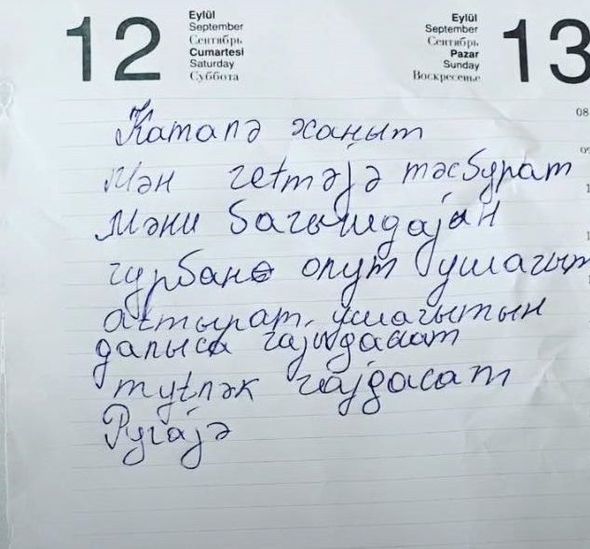 12
Eylül
September
Сентябрь
Cumartesi
Saturday
Суббота
Eylül
September
Сентябрь
Pazar
Sunday
Воскресенье
13
08
Камалә ханым
Мән гетмәјә мәсбурам
Мәни багышлајан
гурбан олум ушагым
атмырам, ушагымын
далыса гајыдасам
мутләк гајдасам
Ругајә